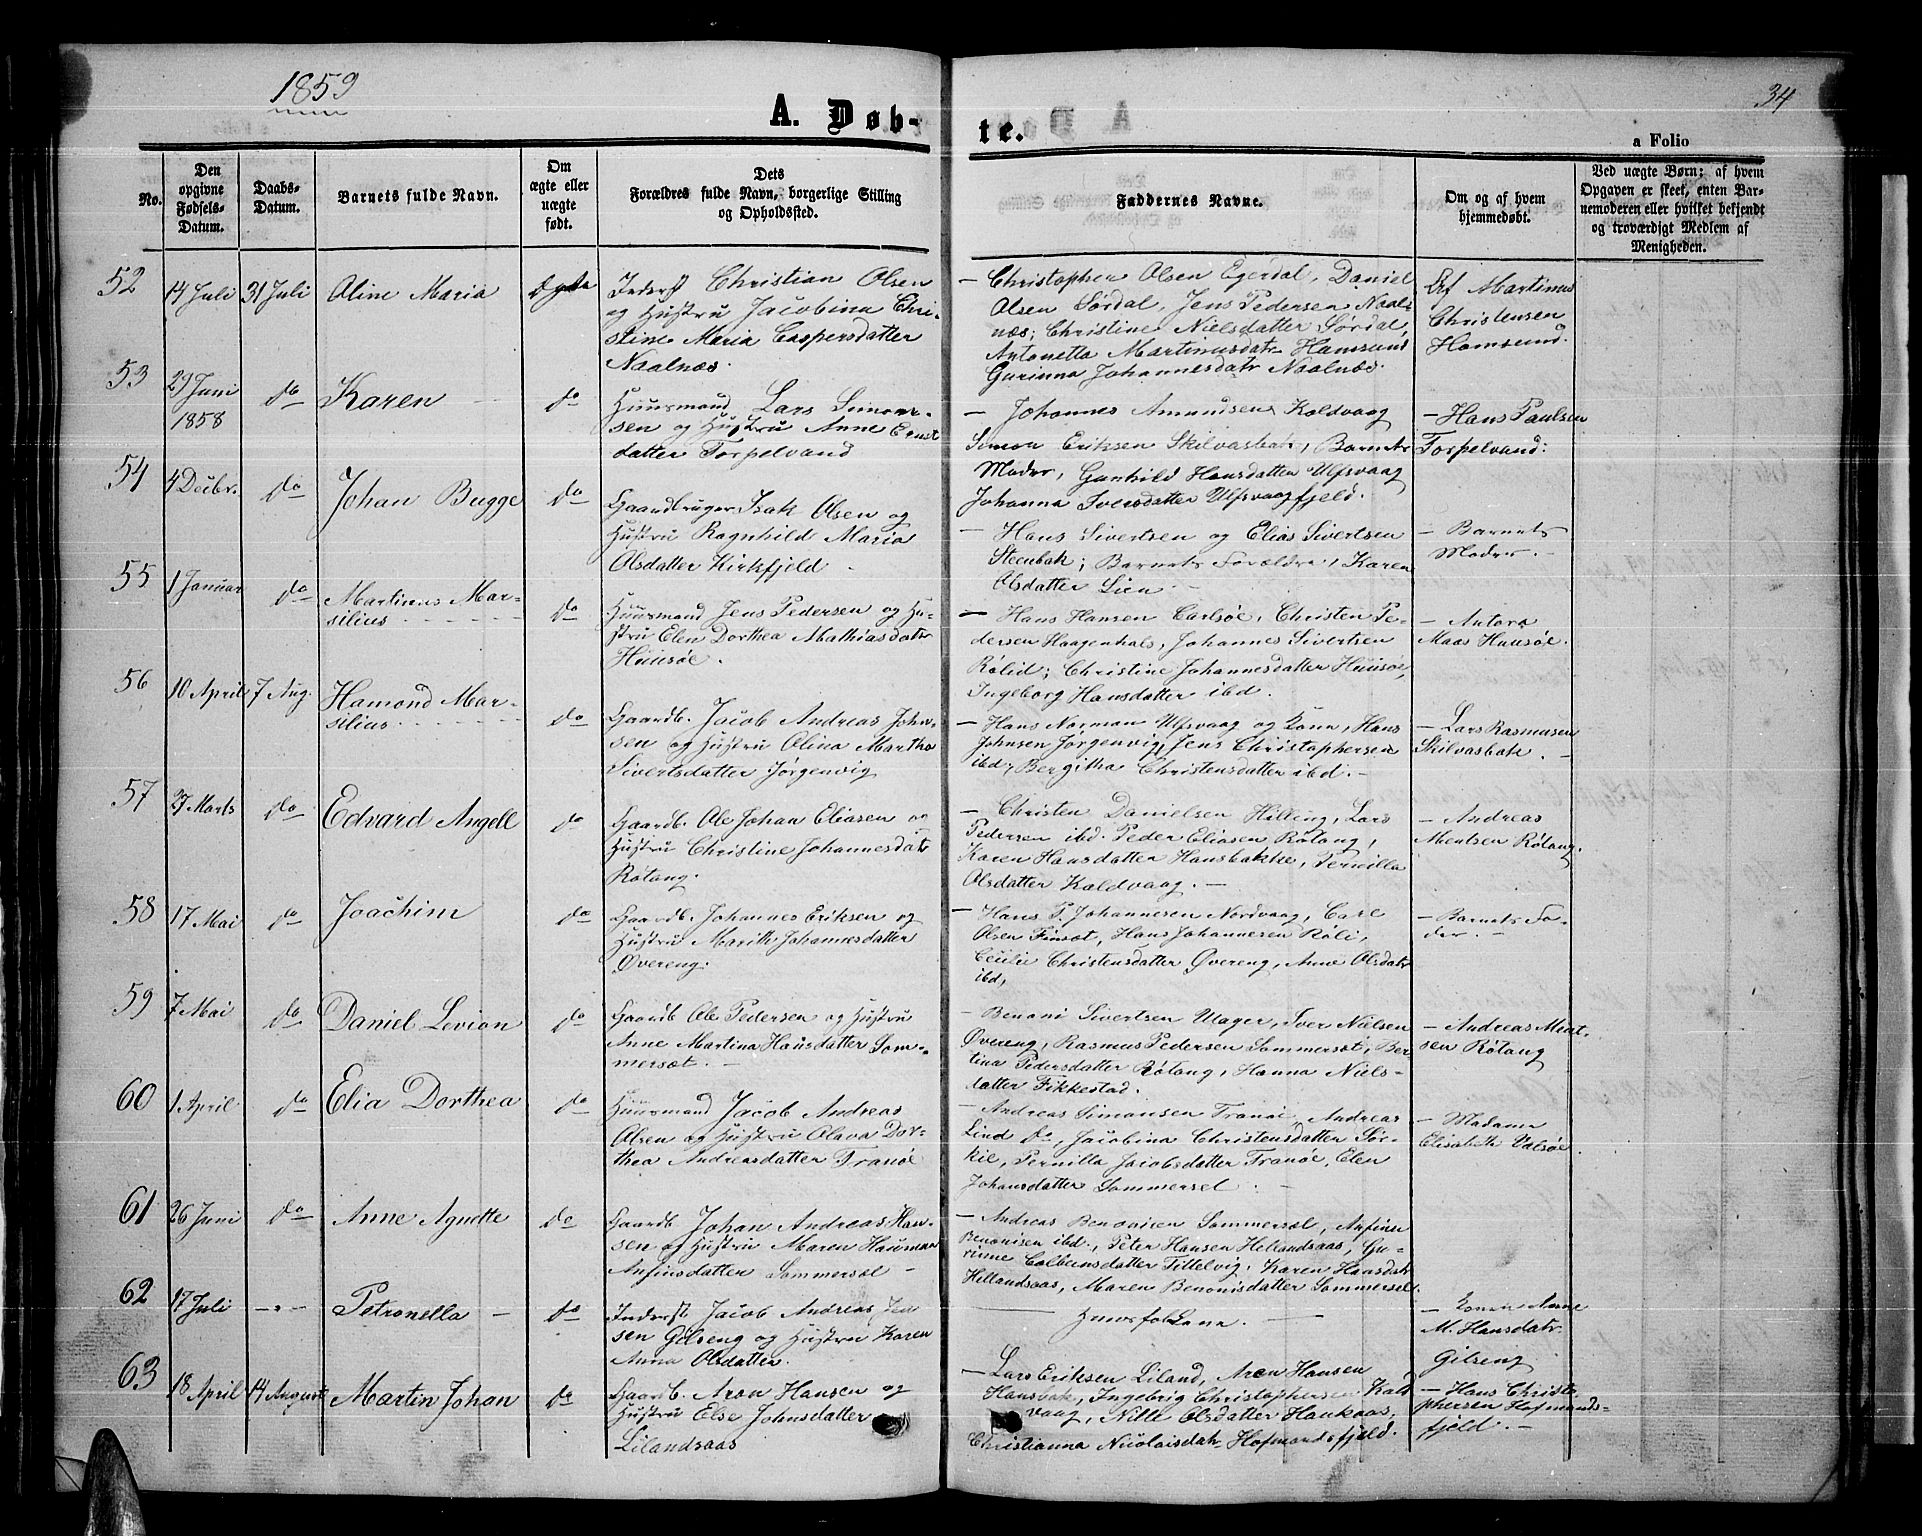 1859
34
A. Døb-
te.
a Folio
No.
Den opgivne Fødsels-Datum.
Daabs-Datum.
Barnets fulde Navn.
Om ægte eller uægte født.
Dets Forældres fulde Navn, borgerlige Stilling og Opholdssted.
Faddernes Navne.
Om og af hvem hjemmedøbt.
Ved uægte Børn; af hvem Opgaven er skeet, enten Barnemoderen eller hvilket bekjendt og troværdigt Medlem af Menigheden.
52
14 Juli
31 Juli
Aline Maria
Ægte
Inderst Christian Olsen
og Hustru Jacobina Chri-
stine Maria Caspersdatter
Naalnæs.
- Christopher Olsen Egerdal, Daniel
Olsen Sørdal, Jens Pedersen Naal-
næs; Christine Nielsdatter Sørdal,
Antonetta Martinusdatr Hamsund
Gurinna Johannesdatr Naalnæs.
Af Martinus
Christensen
Hamsund.
53
29 Juni
1858
do
Karen
do
Huusmand Lars Simon-
sen og Hustru Anne Ernst
datter Torpelvand
- Johannes Amundsen Kaldvaag
Simon Eriksen Skilvasbak, Barnets
Moder, Gunhild Hansdatter Ulfsvaag
Johanna Iversdatter Ulfsvaagfjeld.
- Hans Paulsen
Torpelvand:
54
4 Decbr.
do
Johan Bugge
do
Gaardbruger Isak Olsen og
Hustru Ragnhild Maria
Olsdatter Kirkfjeld
- Hans Sivertsen og Elias Sivertsen
Steenbak; Barnets Forældre, Karen
Olsdatter Lien -
- Barnets
Moder. -
55
1 Januar
do
Martinus Mar-
silius
do
Huusmand Jens Pedersen og Hu-
stru Elen Dorthea Mathiasdatr
Huusøe.
- Hans Hansen Carlsøe, Christen Pe-
dersen Haagenhals, Johannes Sivertsen
Rølid; Christine Johannesdatter Huusøe,
Ingeborg Hansdatter ibd.
- Antora
Maas Huusøe.
56
10 April
7 Aug.
Hamond Mar-
silius
do
Gaardb. Jacob Andreas John-
sen og Hustru Olina Martha
Sivertsdatter Jørgenvig
- Hans Norman Ulfsvaag og Kone, Hans
Johnsen Jørgenvig, Jens Christophersen
ibd, Bergitha Christensdatter ibd. -
- Lars Rasmusen
Skilvasbak.
57
27 Marts
do
Edvard Angell
do
Gaardb. Ole Johan Eliasen og
Hustru Christine Johannesdatr
Røtang.
- Christen Danielsen Hilling, Lars
Pedersen ibd. Peder Eliasen Røtang,
Karen Hansdatter Hansbakke, Pernilla
Olsdatter Kaldvaag. -
- Andreas
Mentsen Røtang.
58
17 Mai
do
Joachim
do
Gaardb. Johannes Eriksen og
Hustru Marith Johannesdatter
Øvereng.
- Hans P. Johannesen Nordvaag, Carl
Olsen Finsæt, Hans Johannesen Røli,
Cecilie Christensdatter Øvereng, Anne Olsdatr
ibd,
- Barnets Fa-
der. -
59
7 Mai
do
Daniel Levion
do
Gaardb Ole Pedersen og Hustru
Anne Martina Hansdatter Som-
mersæt. -
- Benoni Sivertsen Ulager, Iver Nielsen
Øvereng, Rasmus Pedersen Sommersæt, Ber-
tina Pedersdatter Røtang, Hanna Niels-
datter Fikkestad.
- Andreas Ment-
sen Røtang
60
1 April
do
Elia Dorthea
do
Huusmand Jacob Andreas
Olsen og Hustru Olava Dor-
thea Andreasdatter Tranøe
- Andreas Simonsen Tranøe, Andreas
Lind do, Jacobina Christensdatter Sør-
kil, Pernilla Jacobsdatter Tranøe, Elen
Johansdatter Sommersel.
- Madame
Elisabeth Valsøe.
61
26 Juni
do
Anne Agnette
do
Gaardb. Johan Andreas Han-
sen og Hustru Maren Hauman
Anfinsdatter Sommersæl -
- Andreas Benonisen Sommersæl, Anfinn
Benonisen ibd., Peter Hansen Hellandsaas, Gu-
rinne Colbensdatter Tittelvig, Karen Hansdatr
Hellandsaas, Maren Benonisdatter Sommersel.
62
17 Juli
-"-
Petronella -
do
Inderst Jacob Andreas Jen
sen Gilseng og Hustru Karen
Anna Olsdatter.
- Kone Anne
M. Hansdatr.
Gilseng
63
18 April
14 August
Martin Johan
do
Gaardb. Aron Hansen og
Hustru Else Johnsdatter
Lilandsaas
- Lars Eriksen Liland, Aron Hansen
Hansbak, Ingebrig Christophersen Kald
vaag, Nille Olsdatter Haukaas,
Christianna Nicolaisdatr Hofmandsfjeld.
- Hans Christo
phersen Hofmands-
fjeld. -